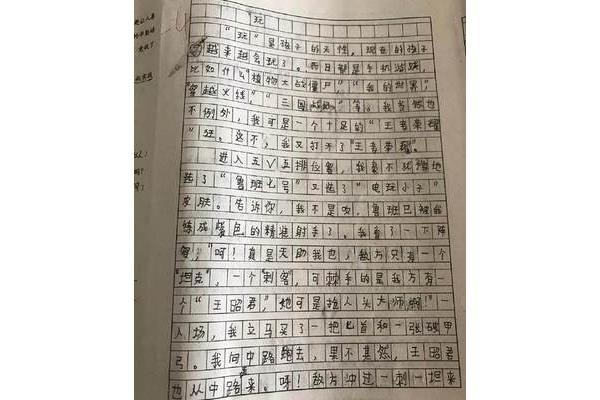 玩
"玩"是孩子的天性，现在的孩子
越来越会玩了。而且都是手机游戏，
比如什么"植物大战僵尸"，"我的世界"，
"穿越火线"，"三国"等。我当然也
不例外，我可是一个十足的"王者荣耀
"狂。这不，我又打开了"王者荣耀"。
进入五V五排位赛，我毫不犹豫地
选了"鲁班七号"又选了"电玩小子"
皮肤。告诉你，我不是吹，鲁班已被我
练成紫色的精准射手了。我看了一下阵
容，"呵！真是天助我也，敌方只有一个
"坦克"，一个"刺客"，可棘手的是我方有一
个"王昭君"，她可是抢人头大师啊！"一
入场，我立马买了一把匕首和一张破甲
弓。我向中路跑去，果不其然，王昭君
也从中路来。呀！敌方冲过一刺一坦来